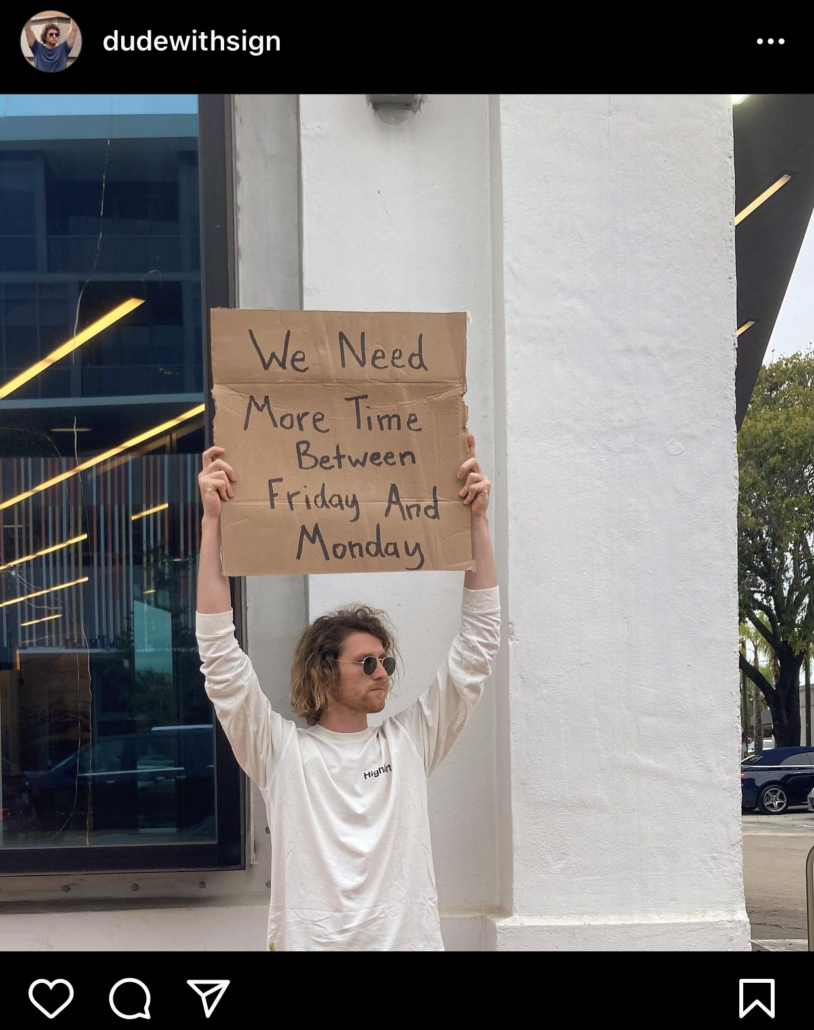 dudewithsign
We Need
More Time
Between
Friday And
Monday